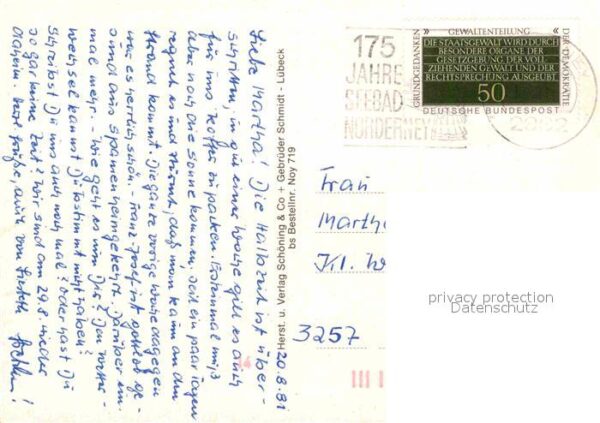 Liebe Martha! Die Halbzeit ist über-
schritten, in gut einer Woche gilt es auch
für uns, Koffer zu packen. Erst einmal muß
aber noch die Sonne kommen, seit ein paar Tagen
regnet es und stürmt, daß man kaum an den
Strand kommt. Die ganze vorige Woche dagegen
war es herrlich schön. Franz-Josef ist gottlob ge-
sund aus Spanien heimgekehrt. Darüber ein-
mal mehr. - Wie geht es nun Dir? Den Wetter-
wechsel kannst Du bestimmt nicht haben?
Schreibst Du uns auch noch mal? Oder hast Du
so gar keine Zeit? Wir sind am 29.8 wieder
daheim. Herzl. Grüße auch von
20.8.81
Herst. u. Verlag Schöning & Co + Gebrüder Schmidt - Lübeck
bs Bestellnr. Noy 719
175
JAHRE
SEEBAD
NORDERNEY
2982
GRUNDGEDANKEN
GEWALTENTEILUNG
DER DEMOKRATIE
DIE STAATSGEWALT WIRD DURCH
BESONDERE ORGANE DER
GESETZGEBUNG DER VOLL
ZIEHENDEN GEWALT UND DER
RECHTSPRECHUNG AUSGEÜBT
50
DEUTSCHE BUNDESPOST
Frau
Marth
Kl. W
3257
privacy protection
Datenschutz